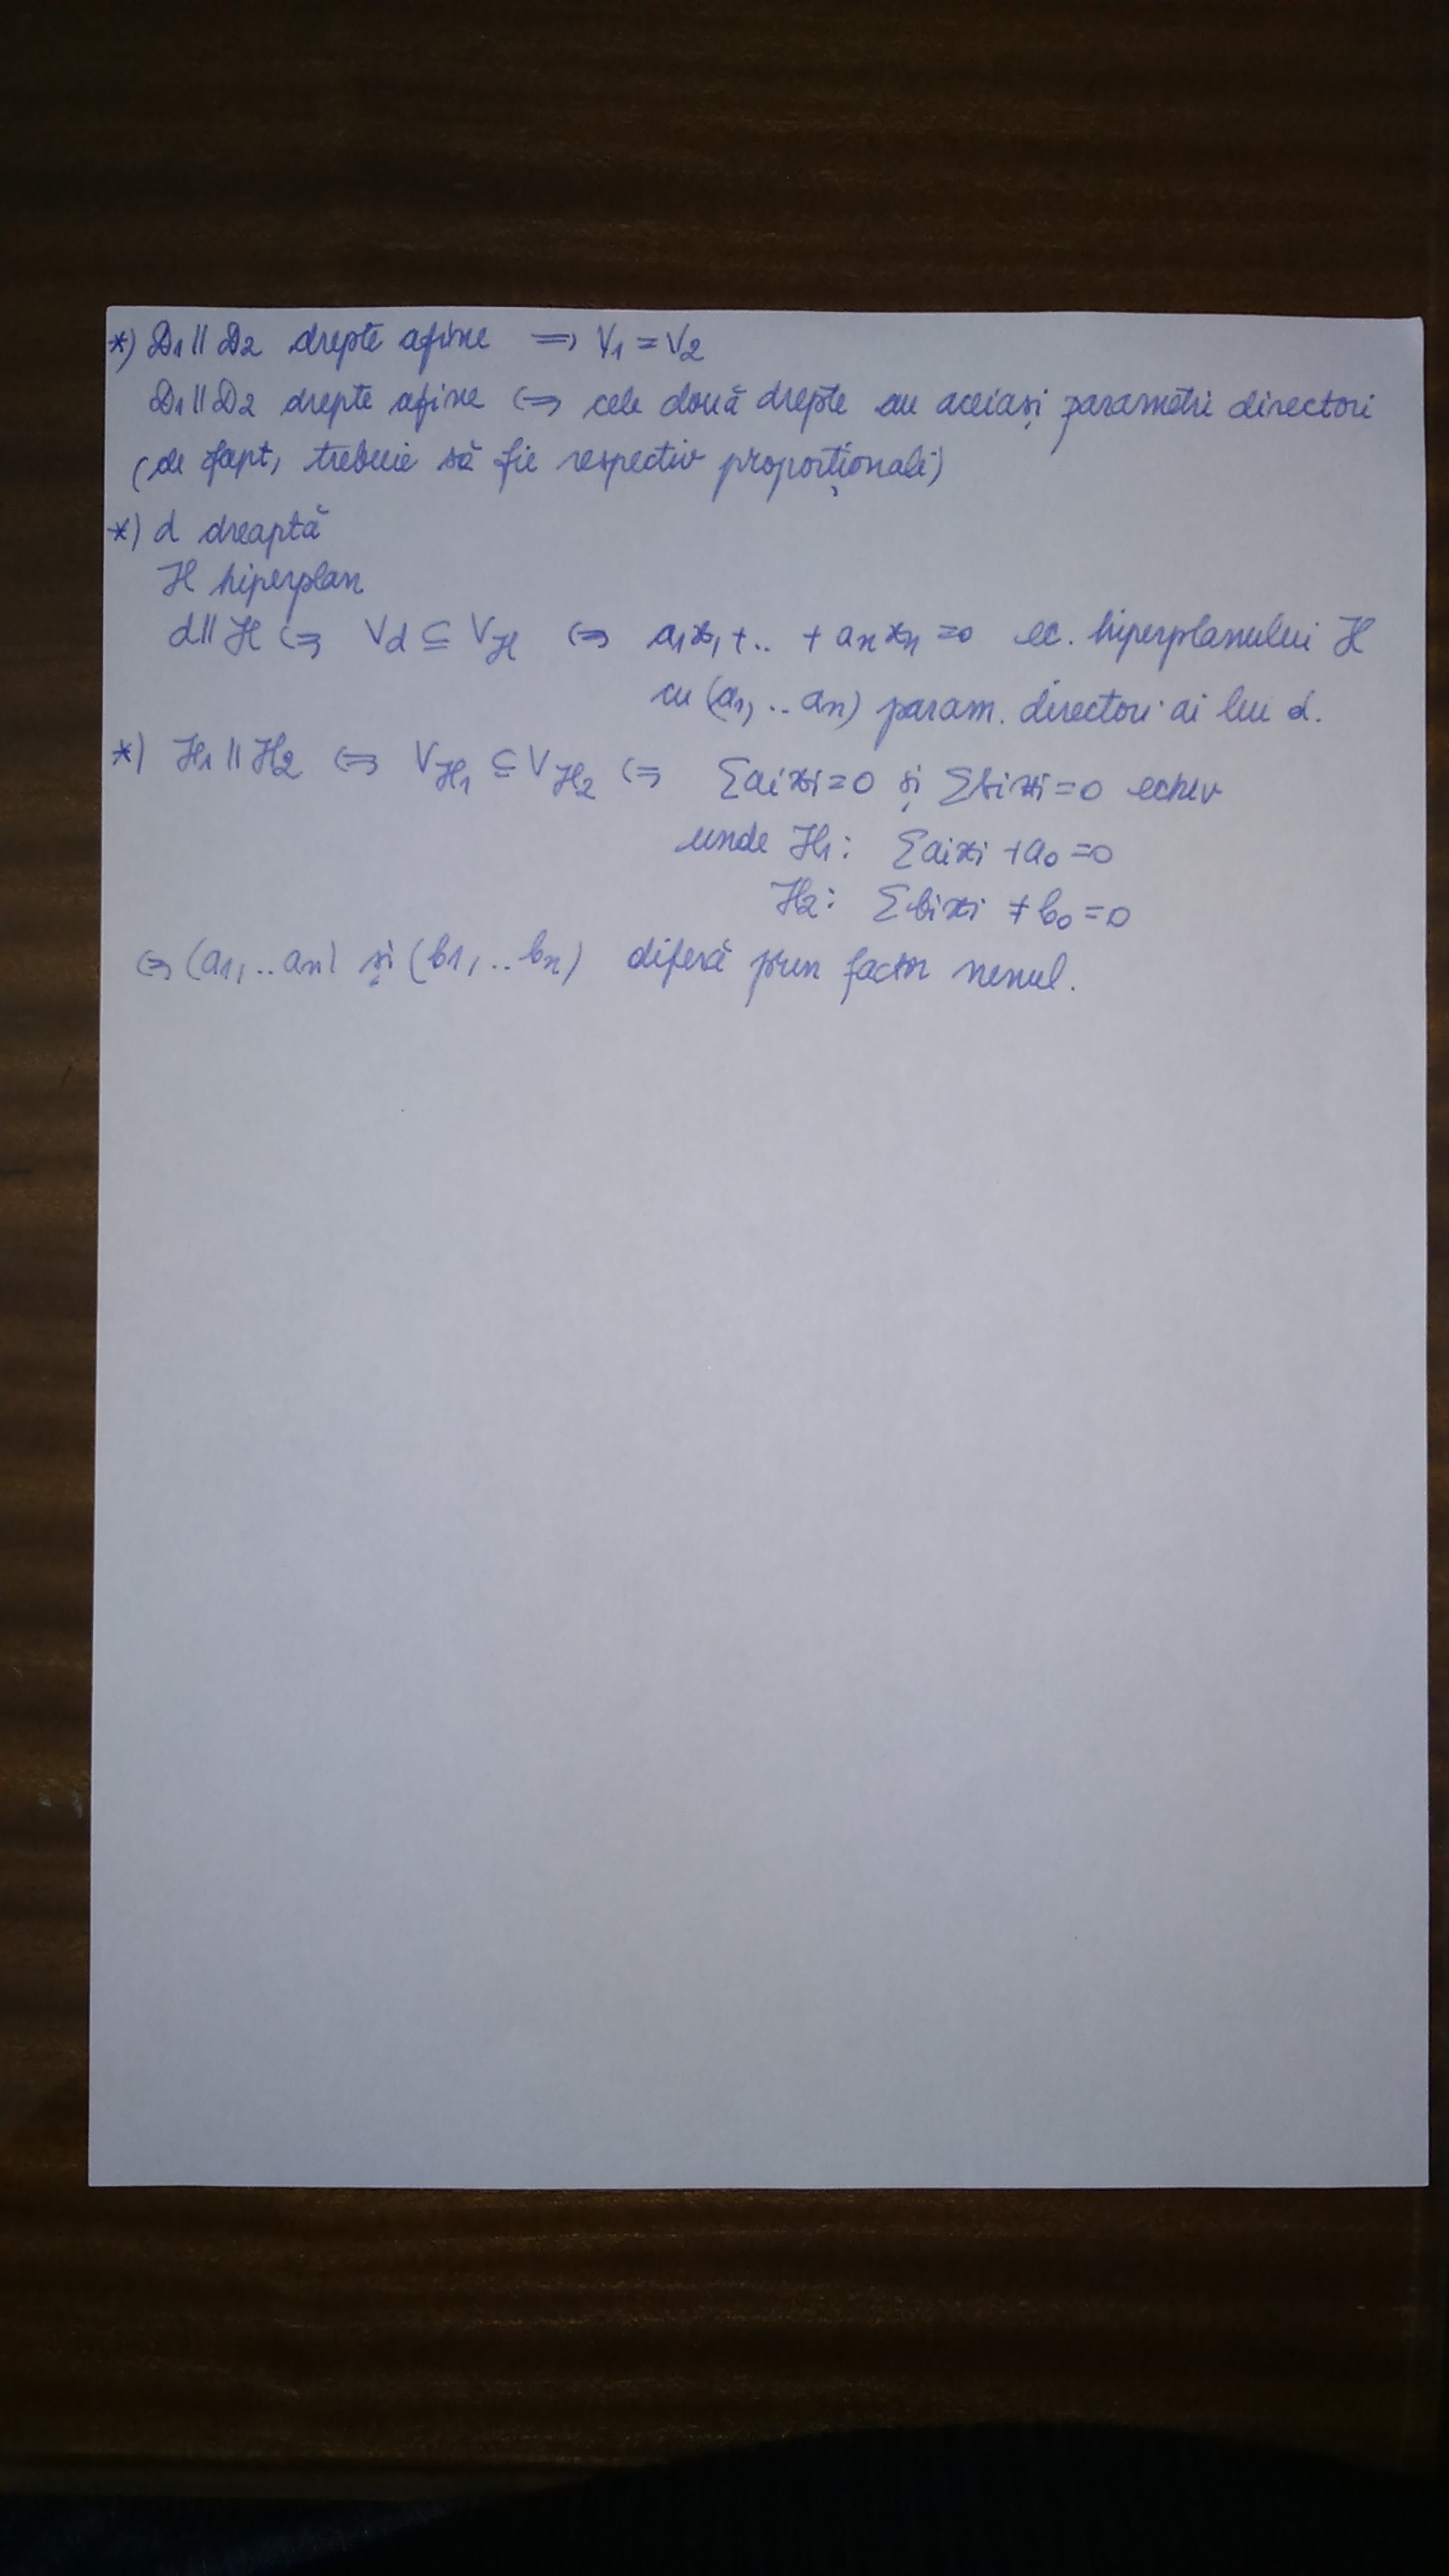 *) D₁ || D₂ drepte afine ⇒ V₁ = V₂
D₁ || D₂ drepte afine ⇔ cele două drepte au aceiași parametri directori
(de fapt, trebuie să fie respectiv proporționali)
*) d dreaptă
H hiperplan
d || H ⇔ V_d ⊆ V_H ⇔ a₁x₁ + .. + aₙxₙ = 0 ec. hiperplanului H
cu (a₁, .. aₙ) param. directori ai lui d.
*) H₁ || H₂ ⇔ V_H₁ ⊆ V_H₂ ⇔ ∑aixi = 0 și ∑bixi = 0 echiv
unde H₁: ∑aixi + a₀ = 0
H₂: ∑bixi + b₀ = 0
⇔ (a₁, .. aₙ) și (b₁, .. bₙ) diferă prin factor nenul.